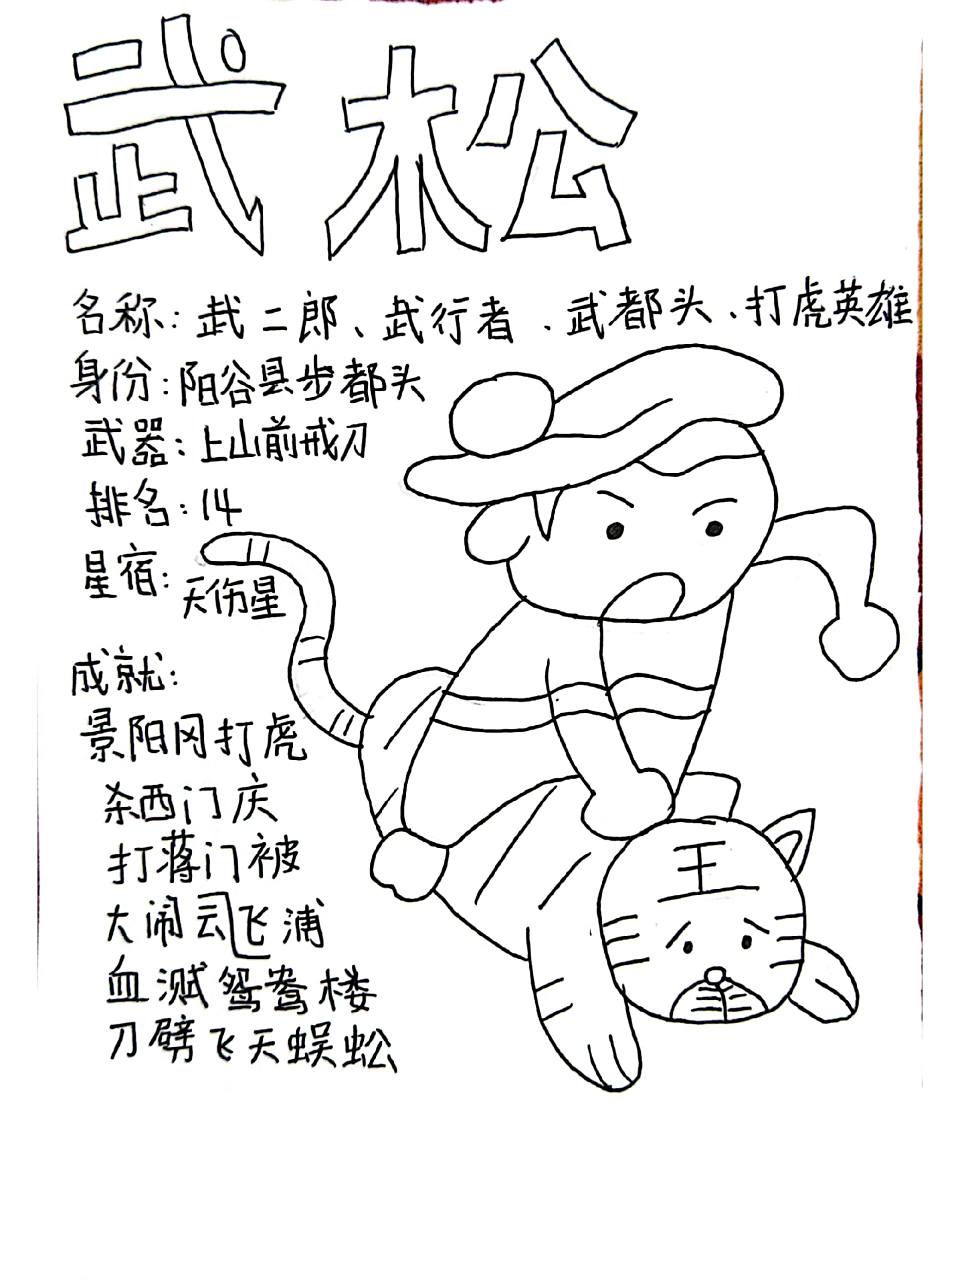 武松
名称：武二郎、武行者、武都头、打虎英雄
身份：阳谷县步都头
武器：上山前戒刀
排名：14
星宿：天伤星
成就：
景阳冈打虎
杀西门庆
打蒋门被
大闹云飞浦
血溅鸳鸯楼
刀劈飞天蜈蚣
王